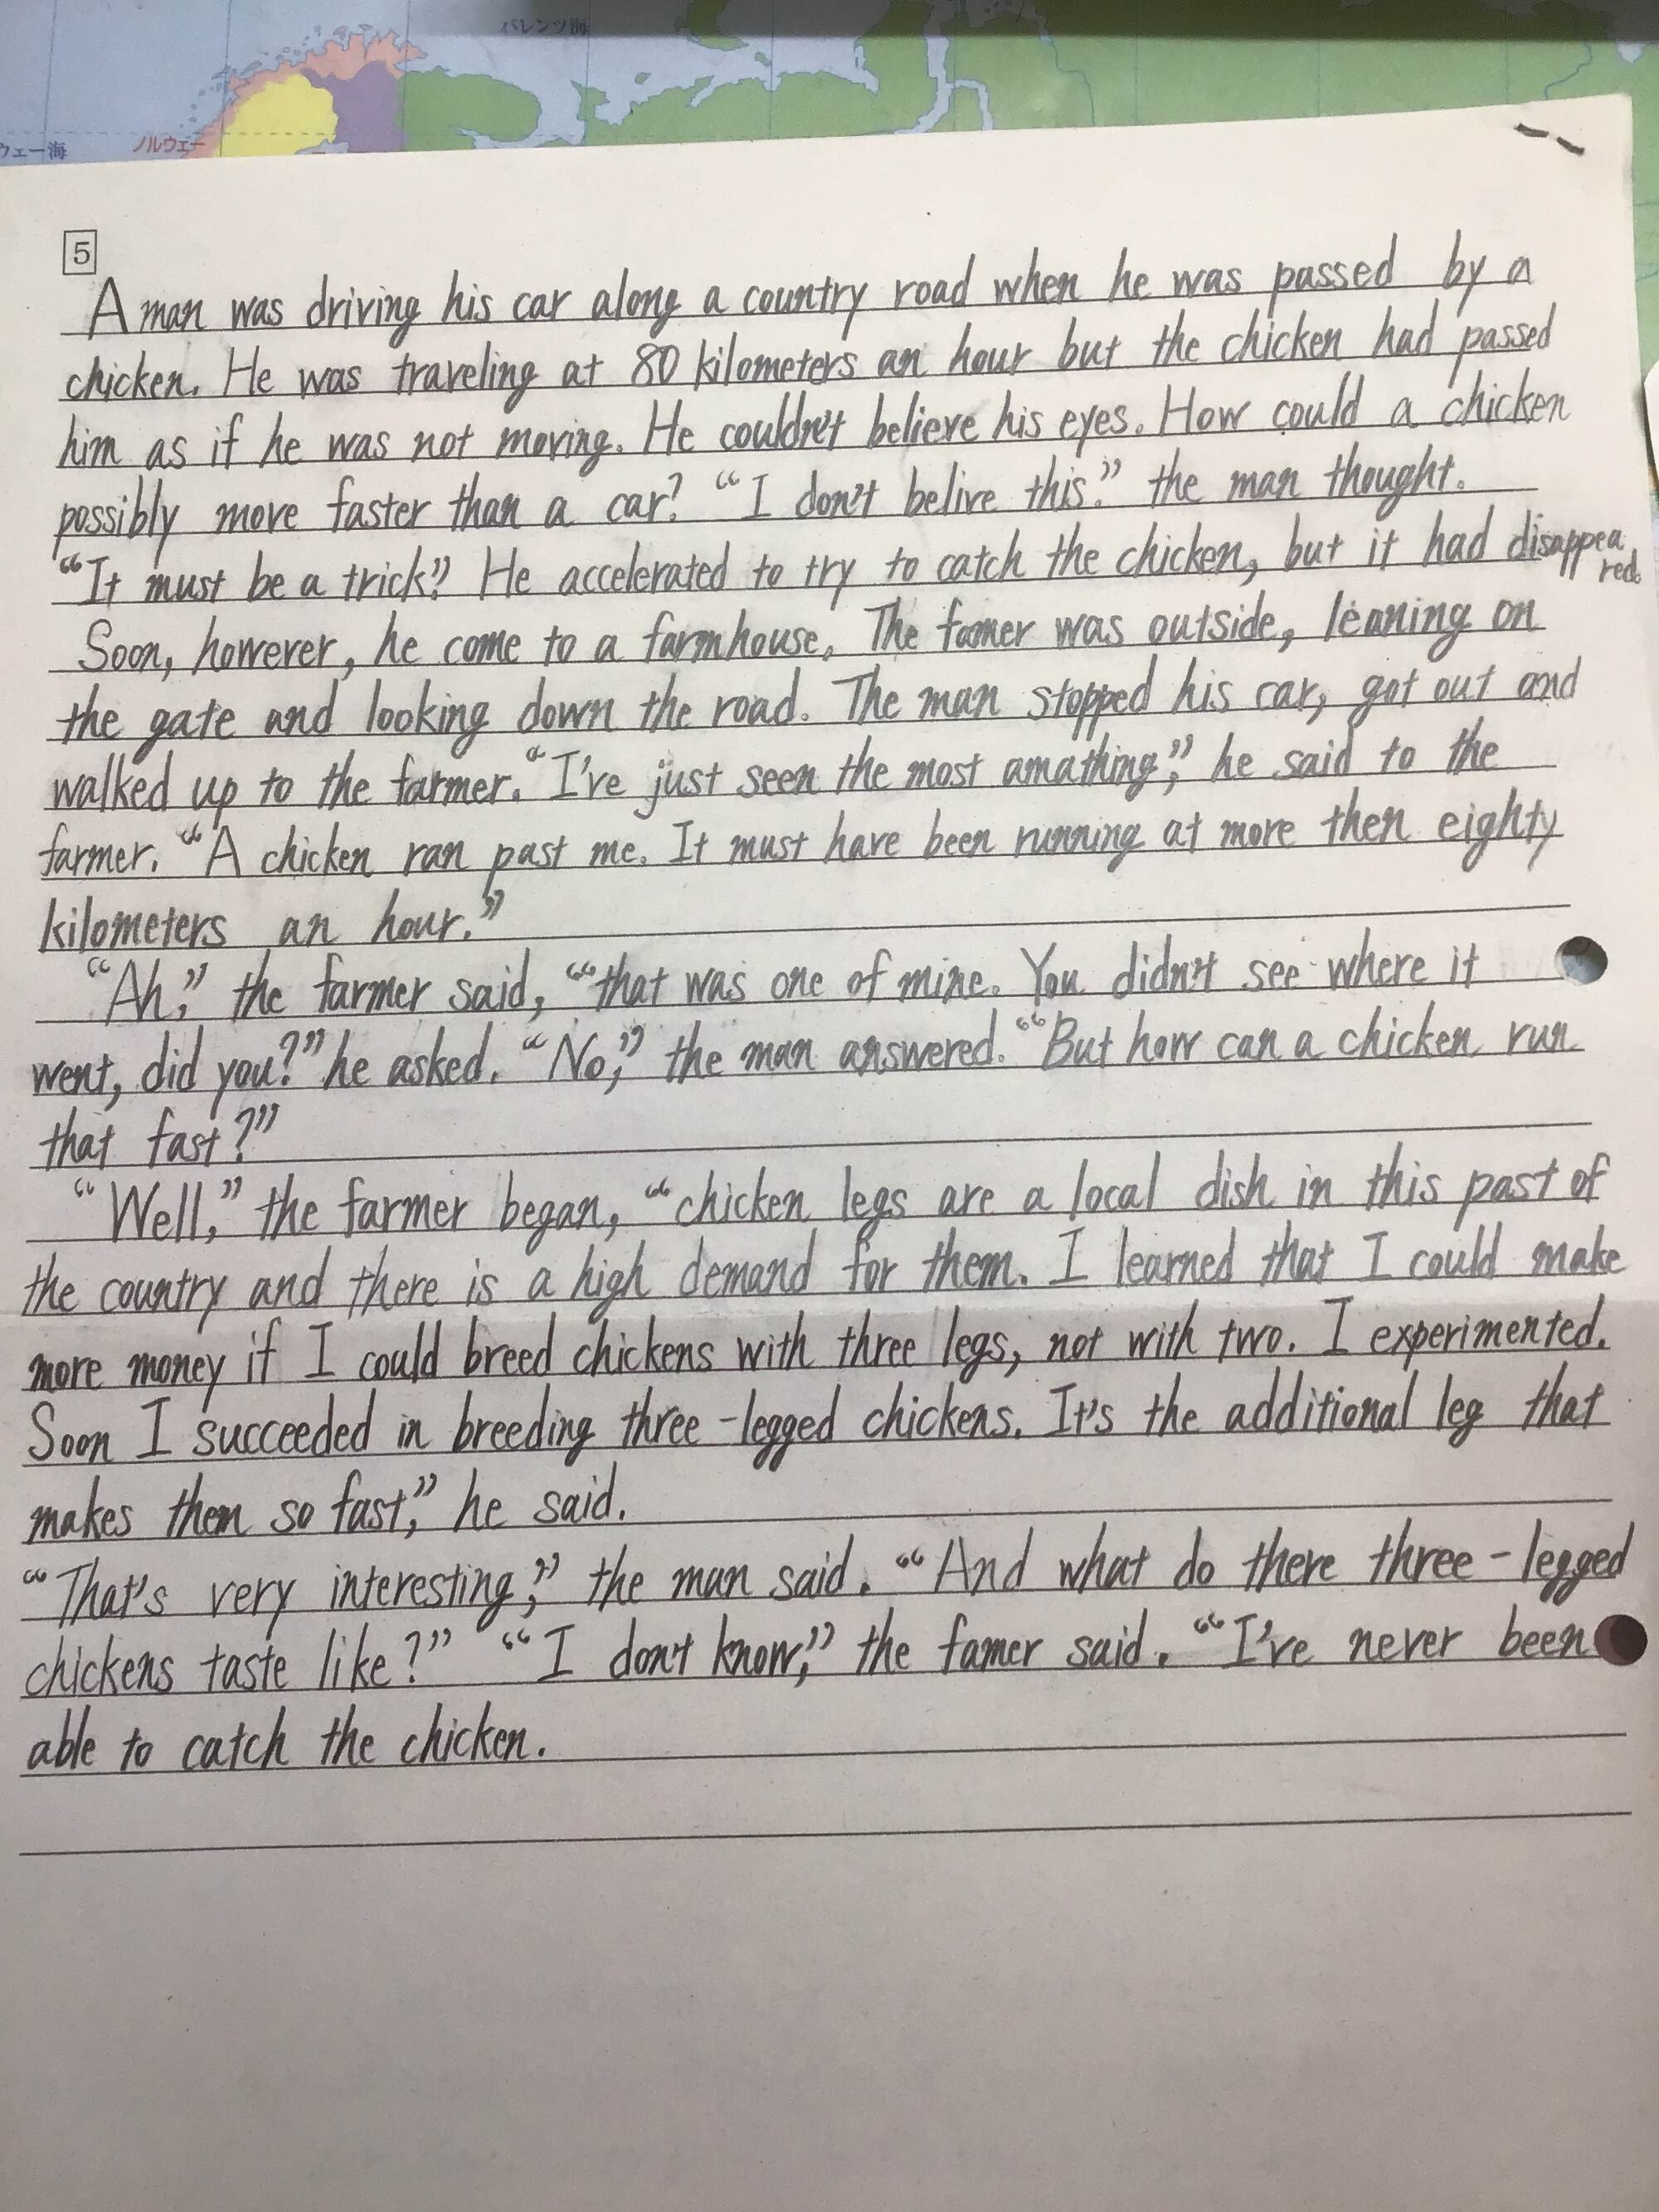 バレンツ海
ウェー海
ノルウェー
5
A man was driving his car along a country road when he was passed by a
chicken. He was traveling at 80 kilometers an hour but the chicken had passed
him as if he was not moving. He couldn't believe his eyes. How could a chicken
possibly move faster than a car? “I don't belive this.” the man thought.
“It must be a trick.” He accelerated to try to catch the chicken, but it had disappea
red.
Soon, however, he come to a farmhouse. The famer was outside, leaning on
the gate and looking down the road. The man stopped his car, got out and
walked up to the farmer. “I've just seen the most amathing,” he said to the
farmer. “A chicken ran past me. It must have been running at more then eighty
kilometers an hour.”
“Ah,” the farmer said, “that was one of mine. You didn't see where it
went, did you?” he asked. “No,” the man answered. “But how can a chicken run
that fast?”
“Well,” the farmer began, “chicken legs are a local dish in this past of
the country and there is a high demand for them. I learned that I could make
more money if I could breed chickens with three legs, not with two. I experimented.
Soon I succeeded in breeding three-legged chickens. It's the additional leg that
makes them so fast,” he said.
“That's very interesting,” the man said. “And what do there three-legged
chickens taste like?” “I don't know,” the famer said. “I've never been
able to catch the chicken.